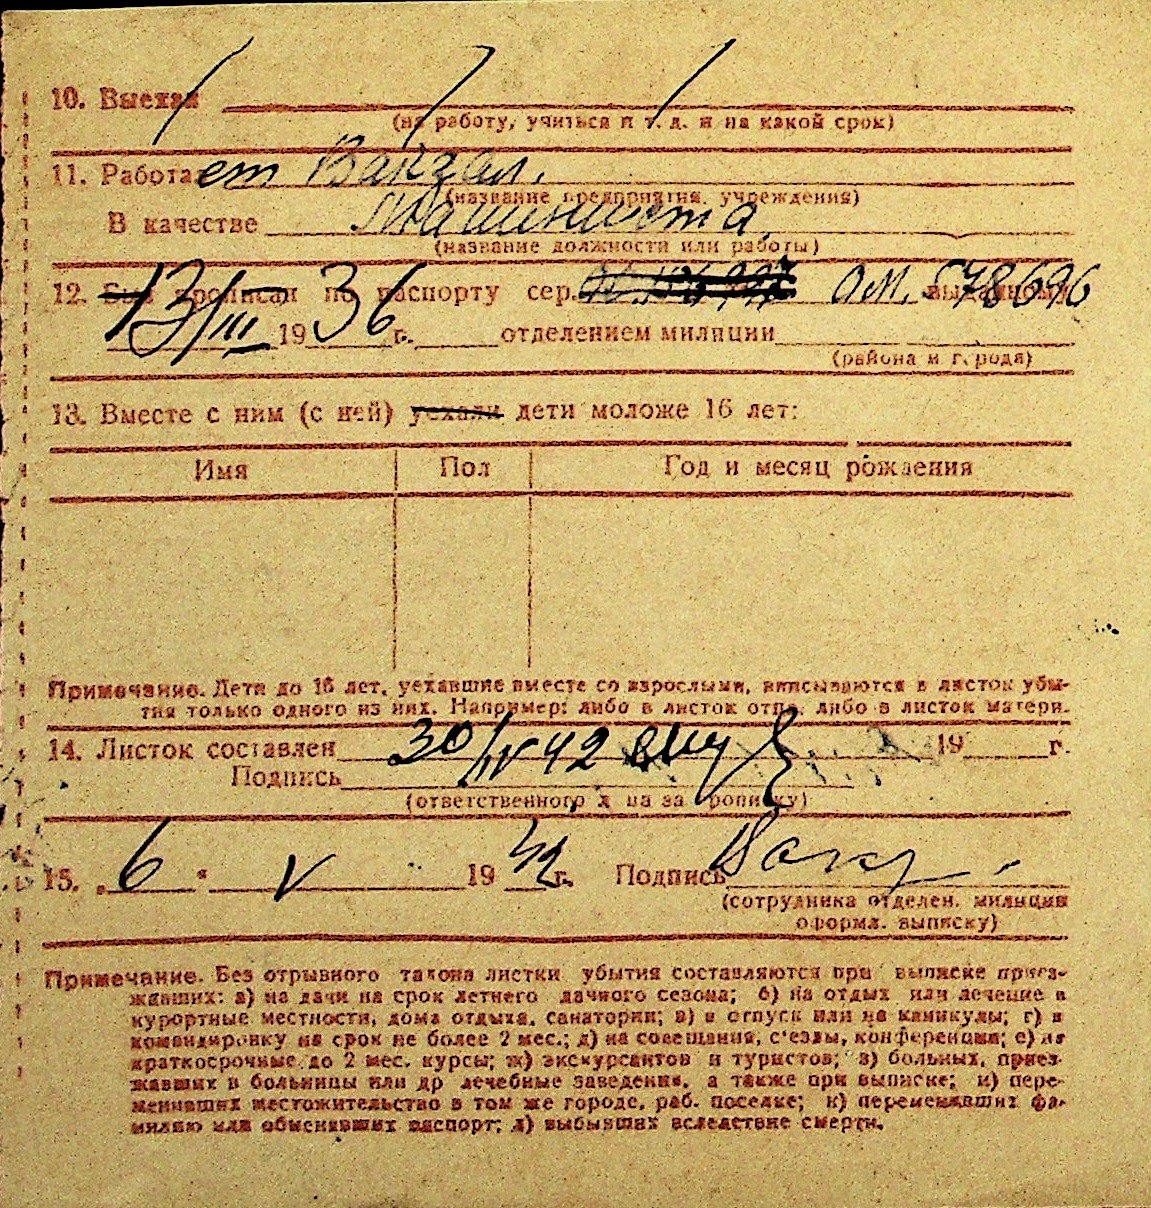 10. Выехал
(на работу, учиться и т. д. и на какой срок)
11. Работает Вакзал.
(название предприятия, учреждения)
В качестве Машиниста
(название должности или работы)
12. Был прописан по паспорту сер. ОМ. 578696 выданному
13/III 1936 г. отделением милиции
(района и города)
13. Вместе с ним (с ней) уехали дети моложе 16 лет:
Имя Пол Год и месяц рождения
Примечание. Дети до 16 лет, уехавшие вместе со взрослыми, вписываются в листок убы-
тия только одного из них. Например: либо в листок отца, либо в листок матери.
14. Листок составлен 30/IV 42 19 г.
Подпись
(ответственного лица за прописку)
15. „6" V 1942 г. Подпись
(сотрудника отделен. милиции
оформл. выписку)
Примечание. Без отрывного талона листки убытия составляются при выписке приез-
жавших: а) на дачи на срок летнего дачного сезона; б) на отдых или лечение в
курортные местности, дома отдыха, санатории; в) в отпуск или на каникулы; г) в
командировку на срок не более 2 мес.; д) на совещания, с'езды, конференции; е) на
краткосрочные до 2 мес. курсы; ж) экскурсантов и туристов; з) больных, приез-
жавших в больницы или др лечебные заведения, а также при выписке; и) пере-
менивших местожительство в том же городе, раб. поселке; к) переменивших фа-
милию или обменявших паспорт; л) выбывших вследствие смерти.